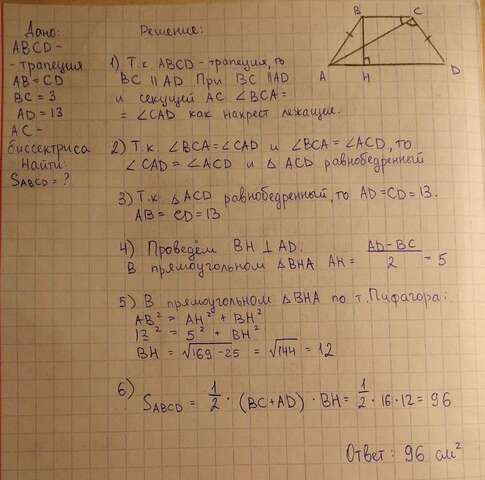 Дано:
ABCD -
- трапеция
AB = CD
BC = 3
AD = 13
AC -
биссектриса
Найти:
S_ABCD = ?
Решение:
1) Т.к ABCD - трапеция, то
BC || AD. При BC || AD
и секущей AC ∠BCA =
= ∠CAD как накрест лежащие.
2) Т.к. ∠BCA = ∠CAD и ∠BCA = ∠ACD, то
∠CAD = ∠ACD и △ ACD равнобедренный
3) Т.к △ ACD равнобедренный, то AD = CD = 13.
AB = CD = 13
4) Проведём BH ⊥ AD.
В прямоугольном △BHA AH = (AD - BC)/2 = 5
5) В прямоугольном △BHA по т. Пифагора:
AB² = AH² + BH²
13² = 5² + BH²
BH = √(169 - 25) = √144 = 12
6) S_ABCD = 1/2 · (BC + AD) · BH = 1/2 · 16 · 12 = 96
Ответ: 96 см²
B C
A H D